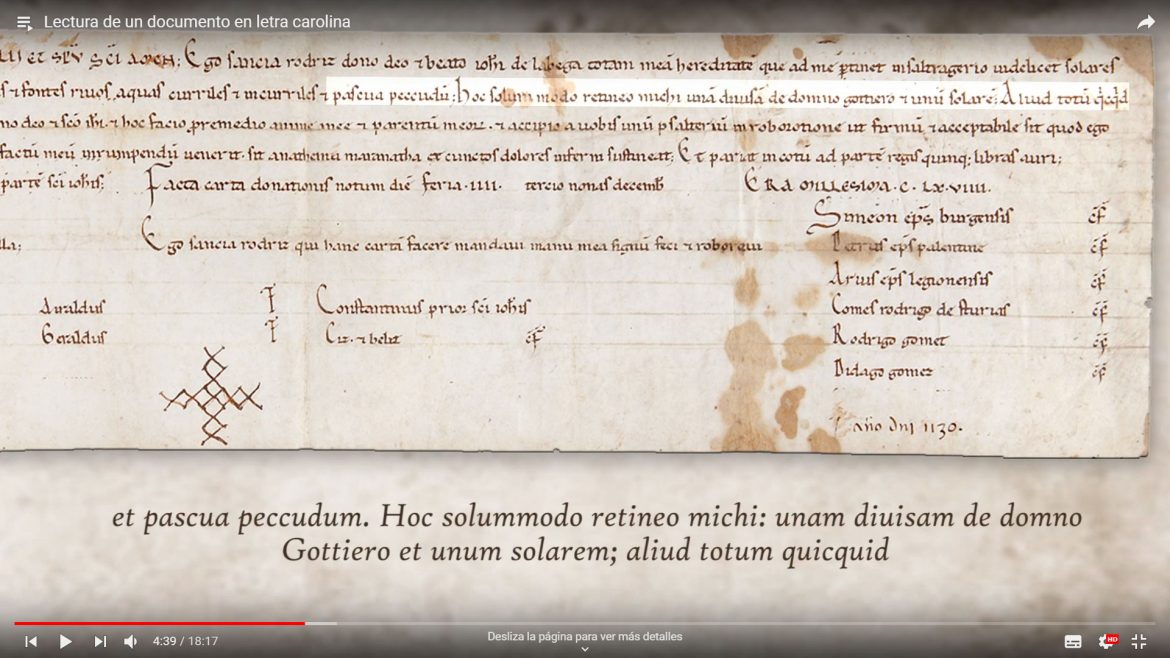 Lectura de un documento en letra carolina
et spũ sc̃i amen; Ego sancia rodriz dono deo ⁊ beato ioh̃i de labega totam meã hereditatẽ que ad me ꝑtinet insaltragerio uidelicet solares
⁊ fontes riuos, aquas curriles ⁊ incurriles ⁊ pascua peccudũ; hoc solum modo retineo michi unã diuisã de domno gottiero ⁊ unũ solarẽ; Aliud totũ q̇cq̇d
no deo ⁊ sc̃o ih̃i. ⁊ hoc facio premedio anime mee ⁊ parentũ meoꝝ. ⁊ accipio a uobis unũ psalteriũ inroborotione ut firmũ ⁊ acceptabile sit quod ego
factũ meũ inrumpendũ uenerit. sit anathema maranatha et cunctos dolores inferni sustineat; Et pariat incotũ ad partẽ regis quinq; libras auri;
partẽ sc̃i ioh̃is; Facta carta donationis notum diẽ feria .IIII. tercio nonas decemb̃ ERA MILLESIMA. C. LX. VIIII.
Simeon ep̃s burgensis cf̃
lla; Ego sancia rodriz qui hanc cartã facere mandaui manu mea signũ feci ⁊ roboraui Petrus ep̃s palentine cf̃
Arius ep̃s legionensis cf̃
Auraldus T Constantinus prior sc̃i ioh̃is Comes rodrigo de sturias cf̃
Geraldus T Ciz. ⁊ belit cf̃ Rodrigo gomet cf̃
Didago gomez cf̃
año dnı 1130.
et pascua peccudum. Hoc solummodo retineo michi: unam diuisam de domno
Gottiero et unum solarem; aliud totum quicquid
4:39 / 18:17
Desliza la página para ver más detalles
HD